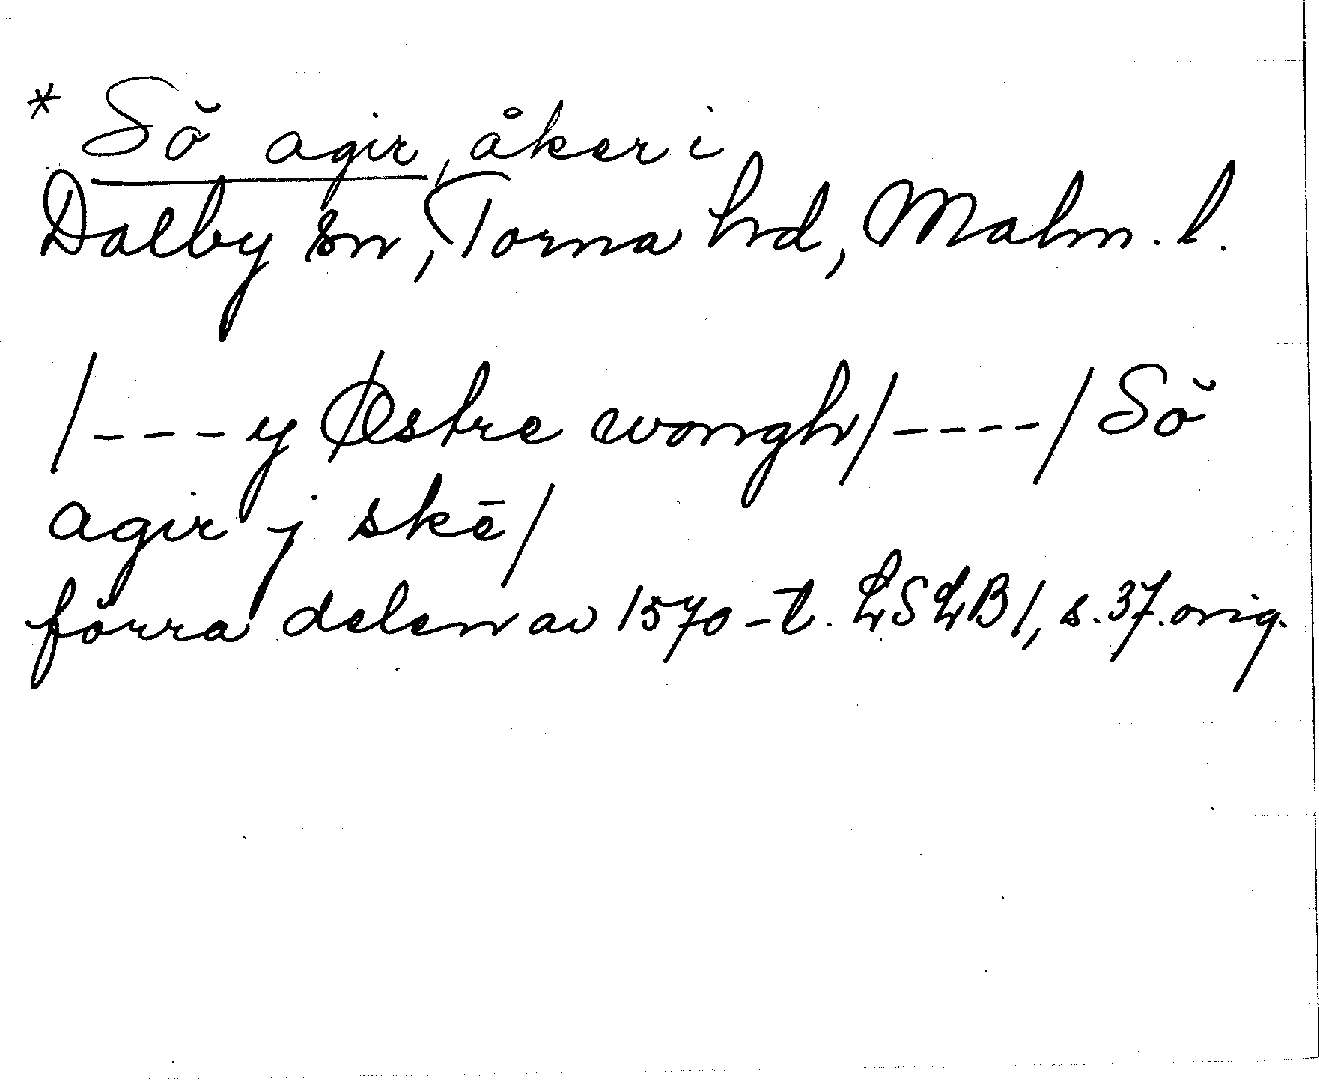 * Sǒ agir, åker i
Dalby sn, Torna hd, Malm. l.
/---y Østre wongh/----/ Sǒ
agir j skē/
förra delen av 1570-t. LSLB1, s. 37. orig.